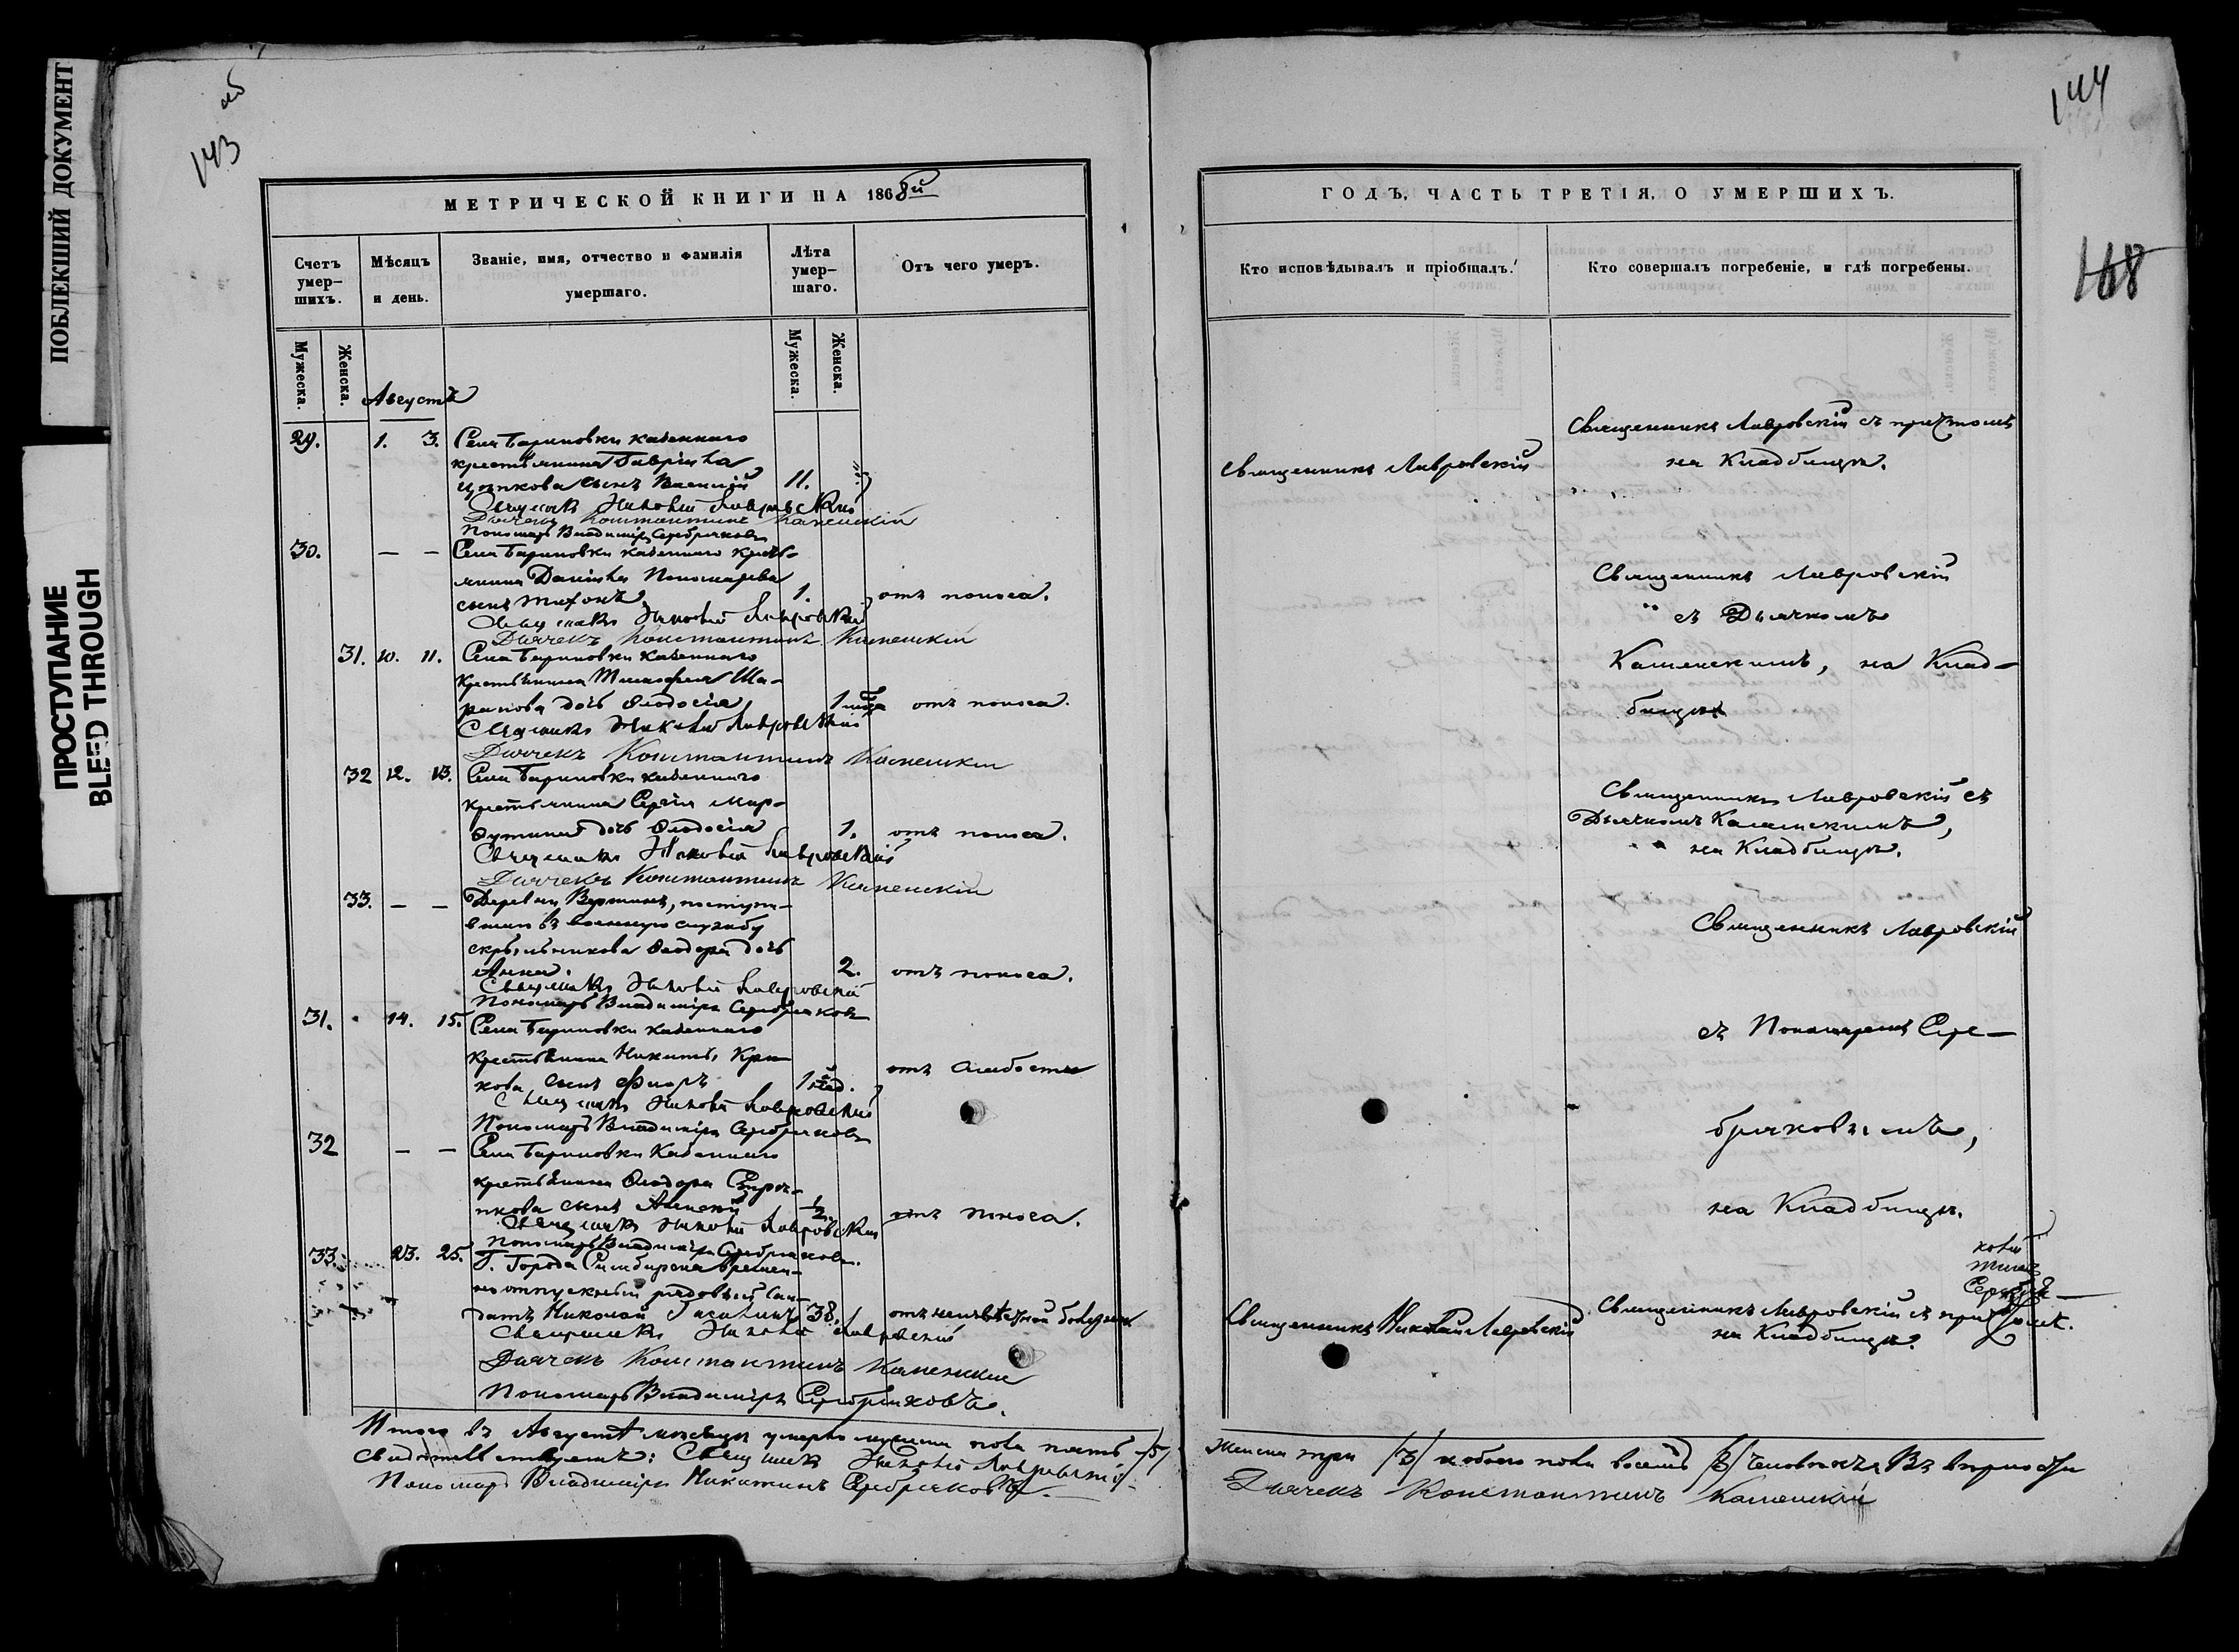 ПОБЛЕКШИЙ ДОКУМЕНТ
ПРОСТУПАНИЕ
BLEED THROUGH
143
об
МЕТРИЧЕСКОЙ КНИГИ НА 1868й
Счетъ умер-шихъ.
Мѣсяцъ и день.
Званіе, имя, отчество и фамилія умершаго.
Лѣта умер-шаго.
Отъ чего умеръ.
Мужеска.
Женска.
Мужеска.
Женска.
Августъ
29. 1. 3. Села Бариновки казеннаго
крестьянина Гавріила
сынъ Василій 11.
Священникъ Лавровскій
Дьячекъ Константинъ Каменскій
Пономарь Владиміръ Серебряковъ
30. — — Села Бариновки казеннаго кресть-
янина Даніила Пономарева
сынъ Тихонъ 1. отъ поноса.
Священникъ Лавровскій
Дьячекъ Константинъ Каменскій
31. 10. 11. Села Бариновки казеннаго
крестьянина Тимофея Ша-
рапова дочь Ѳеодосія 1 отъ поноса.
Священникъ Лавровскій
Дьячекъ Константинъ Каменскій
32 12. 13. Села Бариновки казеннаго
крестьянина Сергія Мар-
дочь Ѳеодосія 1. отъ поноса.
Священникъ Лавровскій
Дьячекъ Константинъ Каменскій
33. — — Деревни
въ военную службу
Ѳеодора дочь
Анна. 2. отъ поноса.
Священникъ Лавровскій
Пономарь Владиміръ Серебряковъ
31. 14. 15. Села Бариновки казеннаго
крестьянина Никиты
кова сынъ Флоръ отъ слабости
Священникъ Лавровскій
Пономарь Владиміръ Серебряковъ
32 — — Села Бариновки Казеннаго
крестьянина Ѳеодора
сынъ Алексій ½. отъ поноса.
Священникъ Лавровскій
Пономарь Владиміръ Серебряковъ.
33. 23. 25. Г. Города Симбирска времен-
но отпускный рядовый Сол-
датъ Николай 38. отъ неизвѣстной болезни
Священникъ Лавровскій
Дьячекъ Константинъ Каменскій
Пономарь Владиміръ Серебряковъ.
Итого въ Августѣ мѣсяцѣ умерло мужска пола пять /5/
свидѣтельствуемъ: Священникъ Лавровскій
Пономарь Владиміръ Никитинъ Серебряковъ.
144
168
ГОДЪ, ЧАСТЬ ТРЕТІЯ, О УМЕРШИХЪ.
Кто исповѣдывалъ и пріобщалъ.
Кто совершалъ погребеніе, и гдѣ погребены.
Священникъ Лавровскій
Священникъ Лавровскій съ причтомъ
на Кладбищѣ.
Священникъ Лавровскій
съ Дьячкомъ
Каменскимъ, на Клад-
бищѣ
Священникъ Лавровскій съ
Дьячкомъ Каменскимъ,
на Кладбищѣ.
Священникъ Лавровскій
съ Пономаремъ Сере-
бряковымъ,
на Кладбищѣ.
Священникъ Николай Лавровскій
Священникъ Лавровскій съ причтомъ.
на Кладбищѣ.
Женска три /3/ и обоего пола восемь /8/ человѣкъ. Въ вѣрности
Дьячекъ Константинъ Каменскій